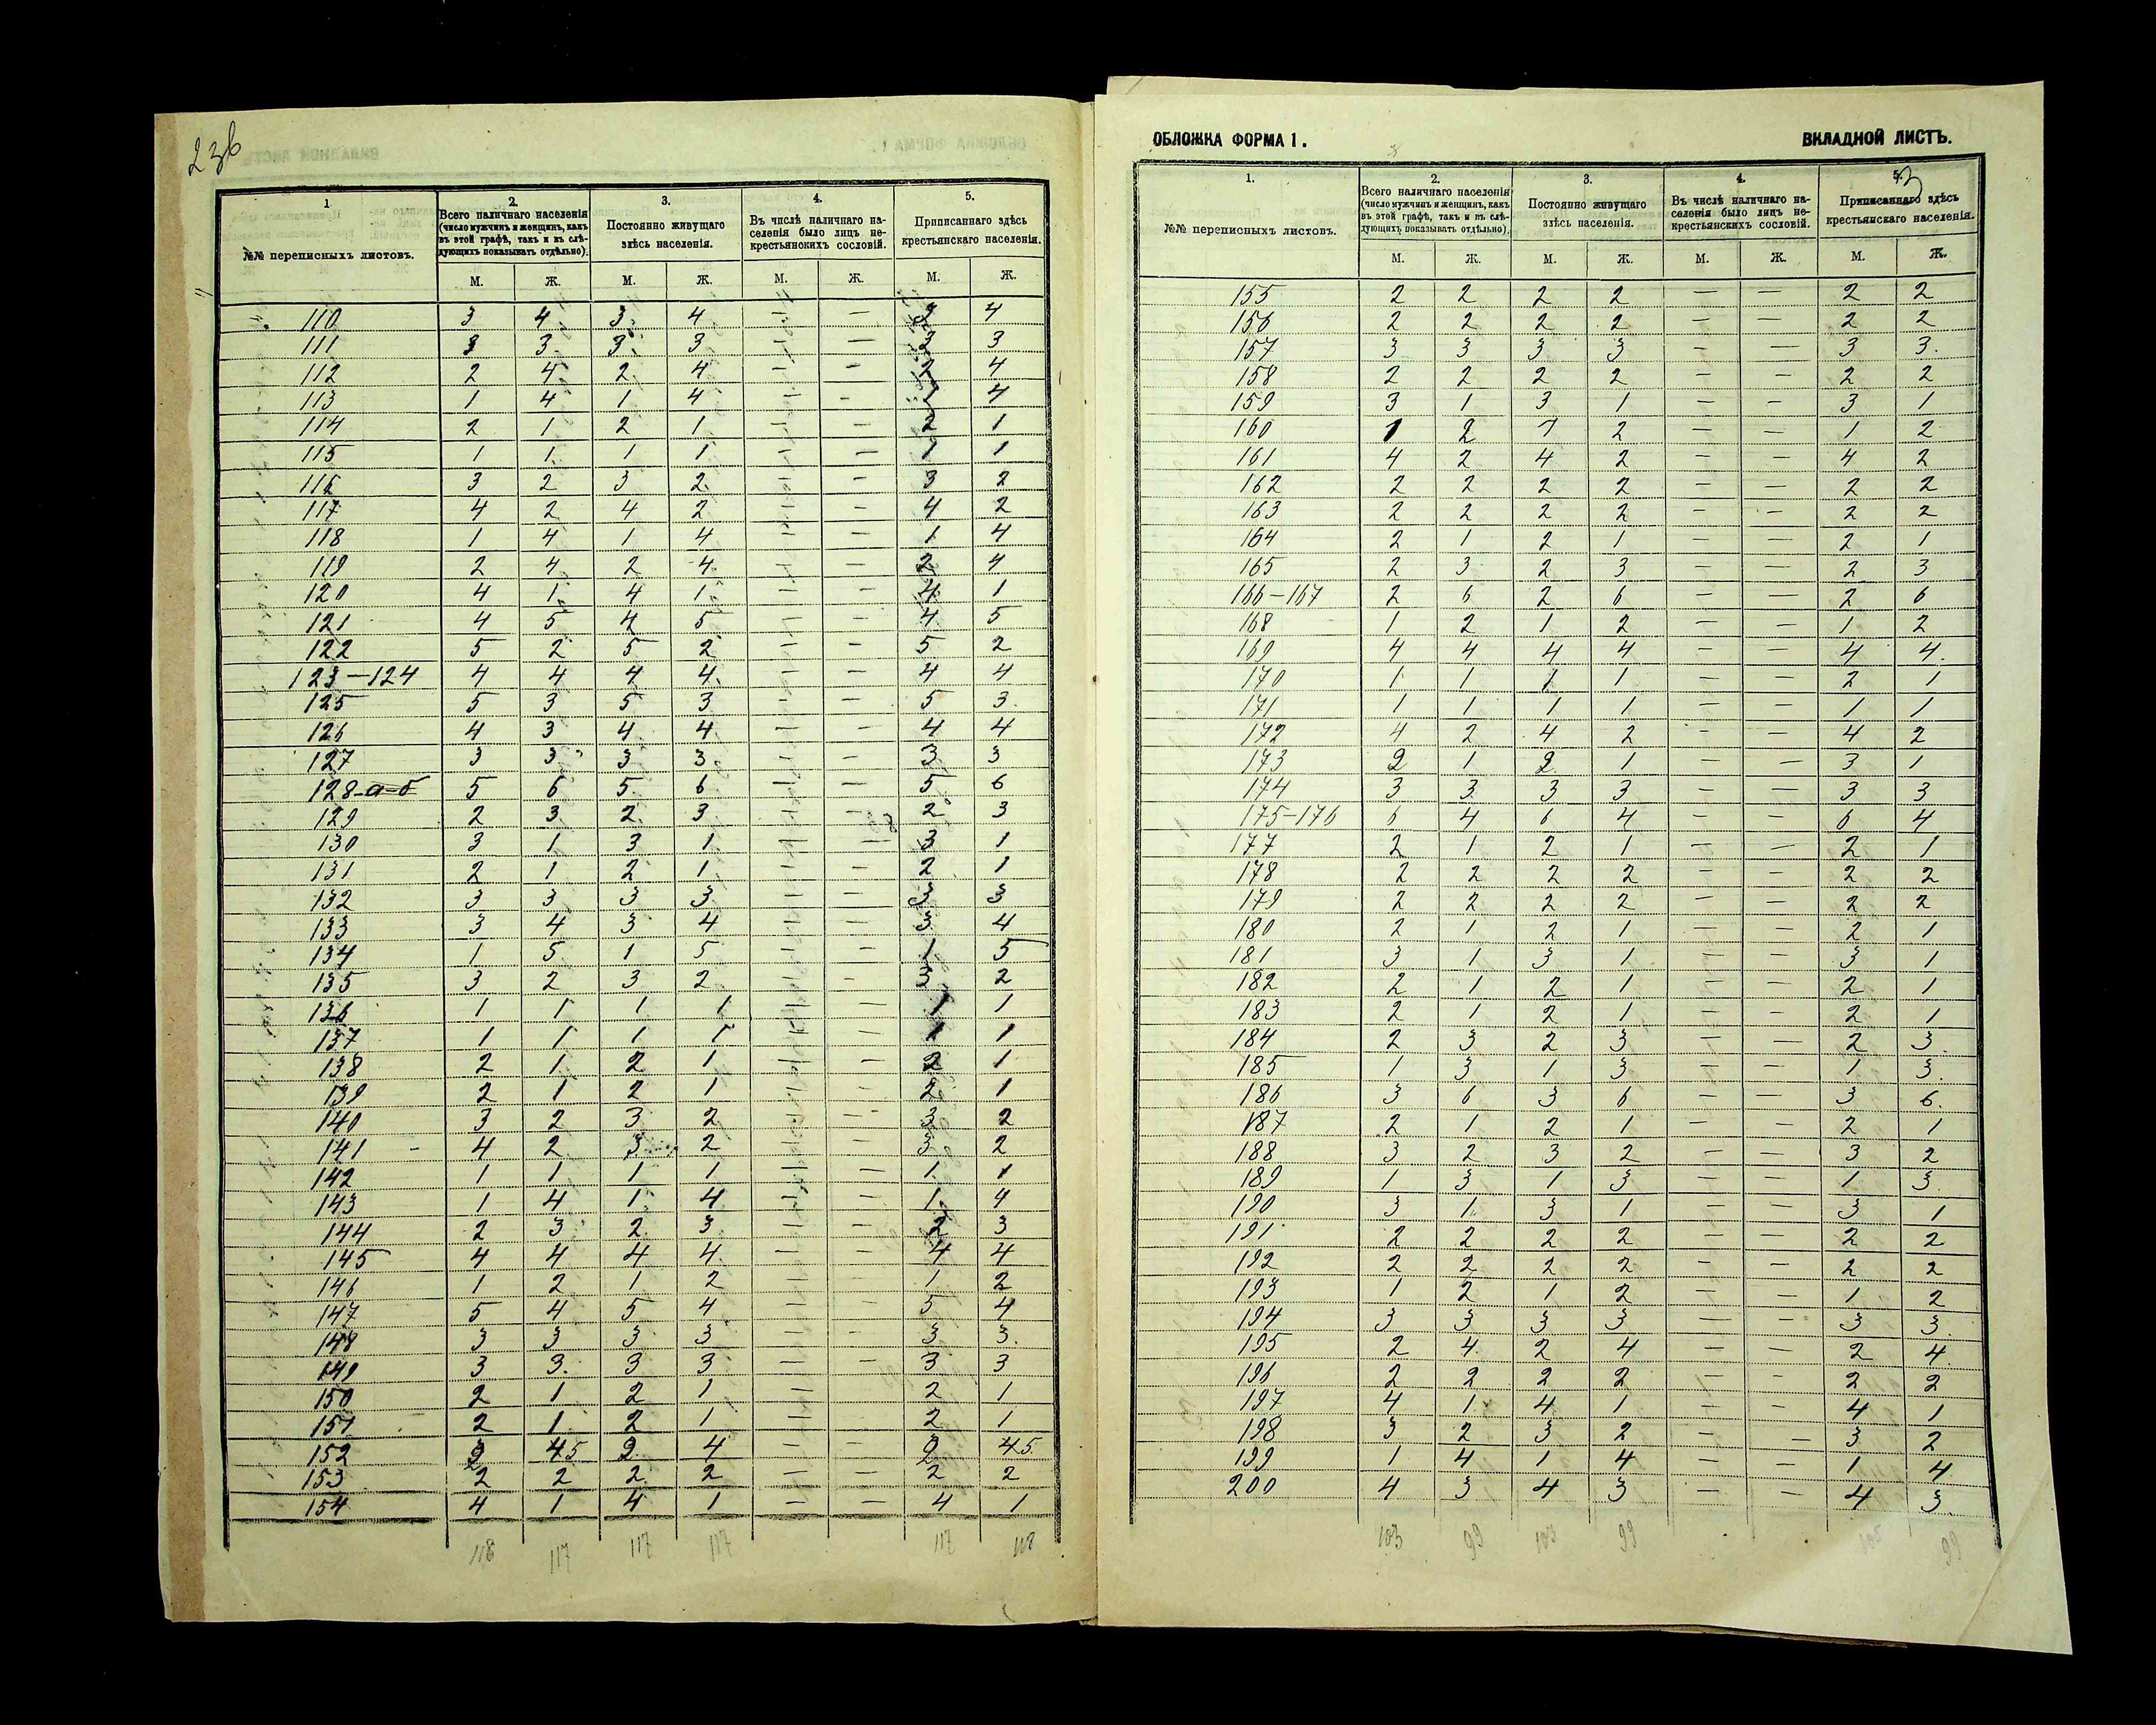 236
1.
№№ переписныхъ листовъ.
2.
Всего наличнаго населенія
(число мужчинъ и женщинъ, какъ
въ этой графѣ, такъ и въ слѣ-
дующихъ показывать отдѣльно).
3.
Постоянно живущаго
здѣсь населенія.
4.
Въ числѣ наличнаго на-
селенія было лицъ не-
крестьянскихъ сословій.
5.
Приписаннаго здѣсь
крестьянскаго населенія.
М. Ж. М. Ж. М. Ж. М. Ж.
110 3 4 3 4 — — 3 4
111 3 3 3 3 — — 3 3
112 2 4 2 4 — — 2 4
113 1 4 1 4 — — 1 4
114 2 1 2 1 — — 2 1
115 1 1 1 1 — — 1 1
116 3 2 3 2 — — 3 2
117 4 2 4 2 — — 4 2
118 1 4 1 4 — — 1 4
119 2 4 2 4 — — 2 4
120 4 1 4 1 — — 4 1
121 4 5 4 5 — — 4 5
122 5 2 5 2 — — 5 2
123—124 4 4 4 4 — — 4 4
125 5 3 5 3 — — 5 3
126 4 3 4 4 — — 4 4
127 3 3 3 3 — — 3 3
128-а-б 5 6 5 6 — — 5 6
129 2 3 2 3 — — 2 3
130 3 1 3 1 — — 3 1
131 2 1 2 1 — — 2 1
132 3 3 3 3 — — 3 3
133 3 4 3 4 — — 3 4
134 1 5 1 5 — — 1 5
135 3 2 3 2 — — 3 2
136 1 1 1 1 — — 1 1
137 1 1 1 1 — — 1 1
138 2 1 2 1 — — 2 1
139 2 1 2 1 — — 2 1
140 3 2 3 2 — — 3 2
141 4 2 3 2 — — 3 2
142 1 1 1 1 — — 1 1
143 1 4 1 4 — — 1 4
144 2 3 2 3 — — 2 3
145 4 4 4 4 — — 4 4
146 1 2 1 2 — — 1 2
147 5 4 5 4 — — 5 4
148 3 3 3 3 — — 3 3
149 3 3 3 3 — — 3 3
150 2 1 2 1 — 2 1
151 2 1 2 1 — — 2 1
152 2 45 2 4 — — 2 45
153 2 2 2 2 — — 2 2
154 4 1 4 1 — — 4 1
118 117 117 117 117 118
ОБЛОЖКА ФОРМА 1. ВКЛАДНОЙ ЛИСТЪ.
1.
№№ переписныхъ листовъ.
2.
Всего наличнаго населенія
(число мужчинъ и женщинъ, какъ
въ этой графѣ, такъ и въ слѣ-
дующихъ показывать отдѣльно).
3.
Постоянно живущаго
здѣсь населенія.
4.
Въ числѣ наличнаго на-
селенія было лицъ не-
крестьянскихъ сословій.
5.
Приписаннаго здѣсь
крестьянскаго населенія.
М. Ж. М. Ж. М. Ж. М. Ж.
155 2 2 2 2 — — 2 2
156 2 2 2 2 — — 2 2
157 3 3 3 3 — — 3 3
158 2 2 2 2 — — 2 2
159 3 1 3 1 — — 3 1
160 1 2 1 2 — — 1 2
161 4 2 4 2 — — 4 2
162 2 2 2 2 — — 2 2
163 2 2 2 2 — — 2 2
164 2 1 2 1 — — 2 1
165 2 3 2 3 — — 2 3
166—167 2 6 2 6 — — 2 6
168 1 2 1 2 — — 1 2
169 4 4 4 4 — — 4 4
170 1 1 1 1 — — 2 1
171 1 1 1 1 — — 1 1
172 4 2 4 2 — — 4 2
173 2 1 2 1 — — 3 1
174 3 3 3 3 — — 3 3
175—176 6 4 6 4 — — 6 4
177 2 1 2 1 — — 2 1
178 2 2 2 2 — — 2 2
179 2 2 2 2 — — 2 2
180 2 1 2 1 — — 2 1
181 3 1 3 1 — — 3 1
182 2 1 2 1 — — 2 1
183 2 1 2 1 — — 2 1
184 2 3 2 3 — — 2 3
185 1 3 1 3 — — 1 3
186 3 6 3 6 — — 3 6
187 2 1 2 1 — — 2 1
188 3 2 3 2 — — 3 2
189 1 3 1 3 — — 1 3
190 3 1 3 1 — — 3 1
191 2 2 2 2 — — 2 2
192 2 2 2 2 — — 2 2
193 1 2 1 2 — — 1 2
194 3 3 3 3 — — 3 3
195 2 4 2 4 — — 2 4
196 2 2 2 2 — — 2 2
197 4 1 4 1 — — 4 1
198 3 2 3 2 — — 3 2
199 1 4 1 4 — — 1 4
200 4 3 4 3 — — 4 3
103 99 103 99 105 99